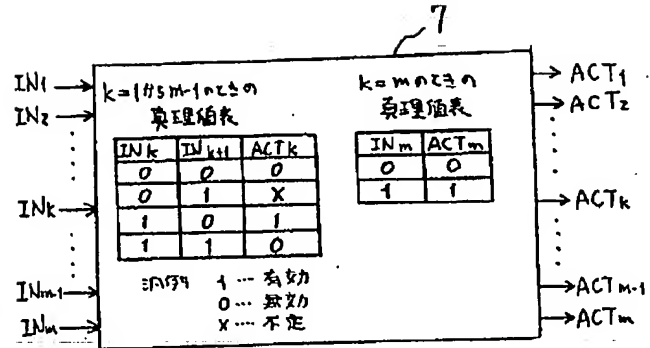 7
IN1
IN2
INk
INm-1
INm
k=1から m-1のときの
真理値表
INk INk+1 ACTk
0 0 0
0 1 X
1 0 1
1 1 0
1 … 有効
0 … 無効
X … 不定
k=mのときの
真理値表
INm ACTm
0 0
1 1
ACT1
ACT2
ACTk
ACTm-1
ACTm